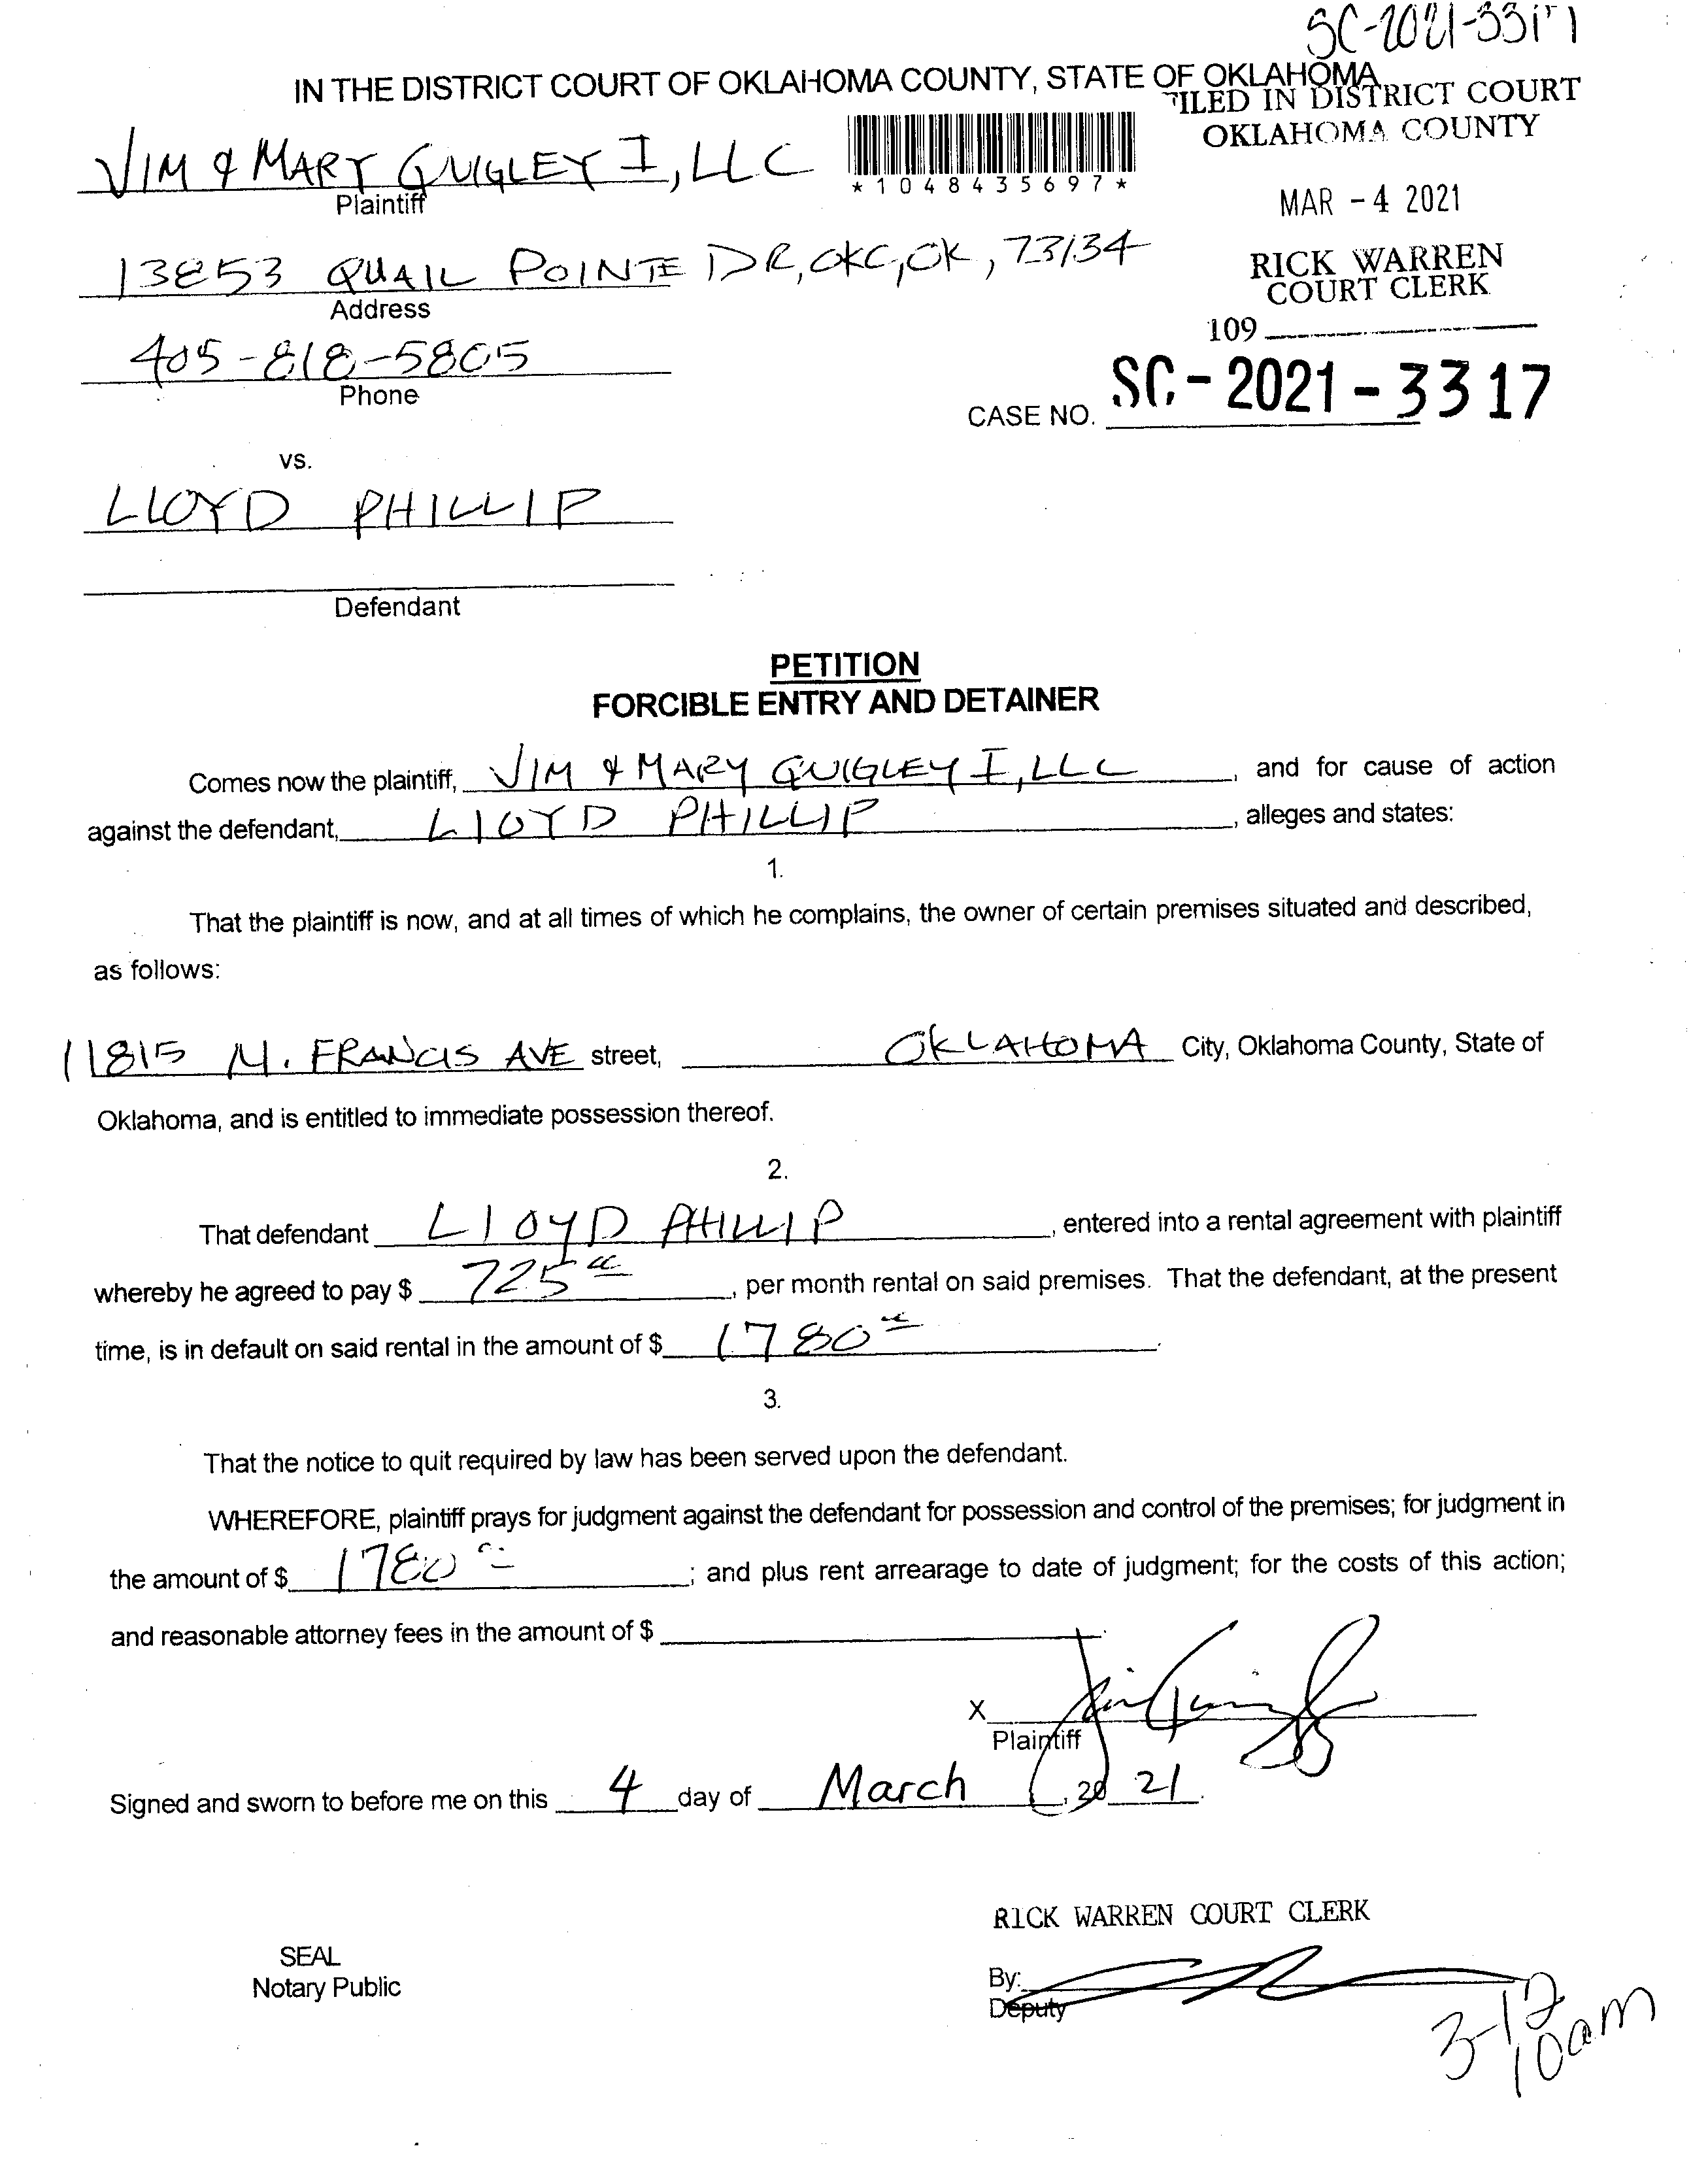 SC-2021-3317
IN THE DISTRICT COURT OF OKLAHOMA COUNTY, STATE OF OKLAHOMA
FILED IN DISTRICT COURT
OKLAHOMA COUNTY
JIM & MARY QUIGLEY I, LLC
Plaintiff
*1048435697*
MAR - 4 2021
13853 QUAIL POINTE DR, OKC, OK, 73134
Address
RICK WARREN
COURT CLERK
109
405-818-5805
Phone
CASE NO. SC-2021-3317
vs.
LLOYD PHILLIP
Defendant
PETITION
FORCIBLE ENTRY AND DETAINER
Comes now the plaintiff, JIM & MARY QUIGLEY I, LLC, and for cause of action
against the defendant, LLOYD PHILLIP, alleges and states:
1.
That the plaintiff is now, and at all times of which he complains, the owner of certain premises situated and described,
as follows:
11815 N. FRANCIS AVE street, OKLAHOMA City, Oklahoma County, State of
Oklahoma, and is entitled to immediate possession thereof.
2.
That defendant LLOYD PHILLIP, entered into a rental agreement with plaintiff
whereby he agreed to pay $ 725, per month rental on said premises. That the defendant, at the present
time, is in default on said rental in the amount of $ 1780.
3.
That the notice to quit required by law has been served upon the defendant.
WHEREFORE, plaintiff prays for judgment against the defendant for possession and control of the premises; for judgment in
the amount of $ 1780; and plus rent arrearage to date of judgment; for the costs of this action;
and reasonable attorney fees in the amount of $
X
Plaintiff
Signed and sworn to before me on this 4 day of March, 20 21.
RICK WARREN COURT CLERK
SEAL
Notary Public
By:
Deputy
3-12
10am